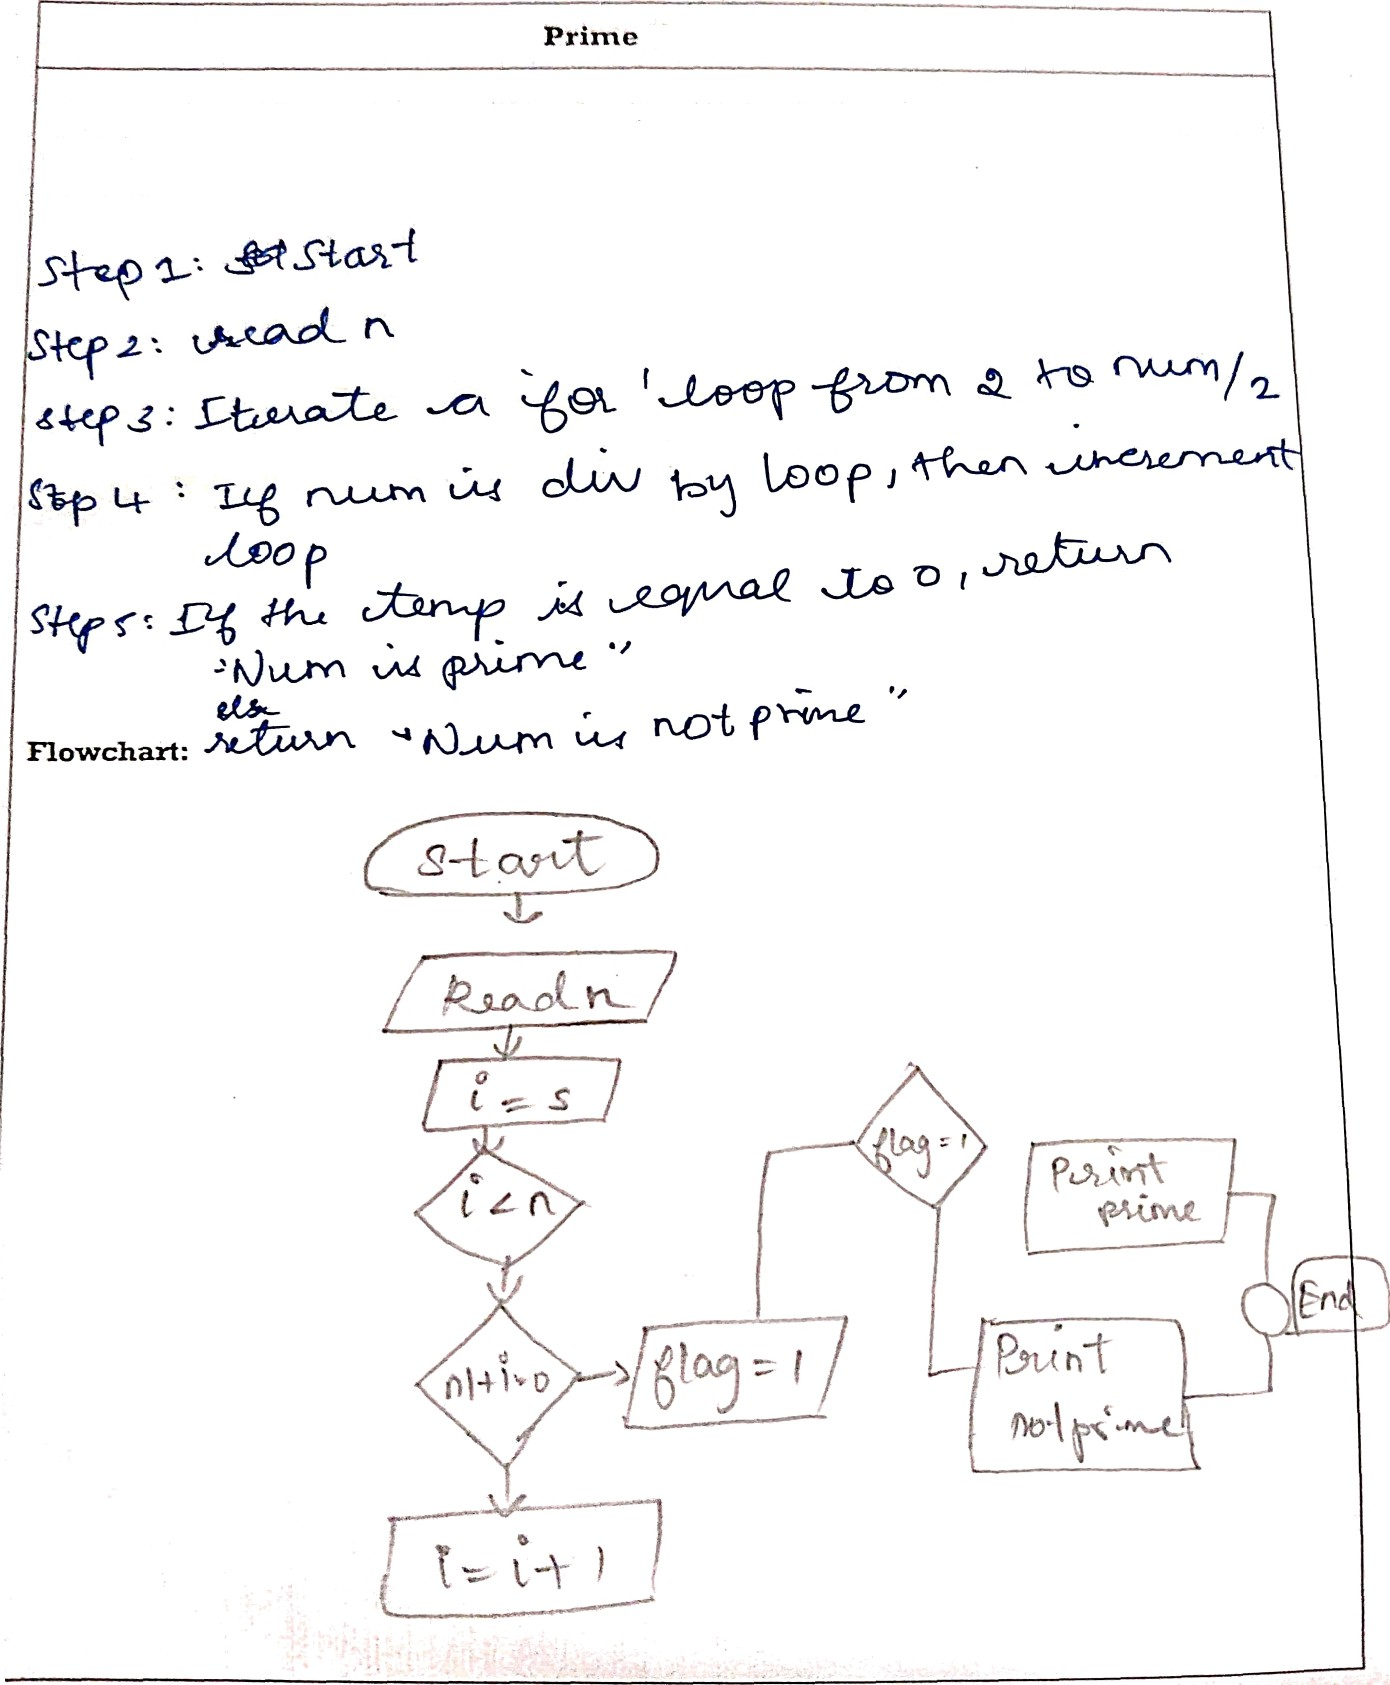 Prime
Step 1: Start
Step 2: read n
Step 3: Iterate a 'for' loop from 2 to num/2
Step 4: If num is div by loop, then increment
loop
Step 5: If the temp is equal to 0, return
"Num is prime"
else
return "Num is not prime"
Flowchart:
Start
Read n
i = s
i < n
flag = 1
i = i + 1
flag = 1
Print
prime
Print
not prime
End